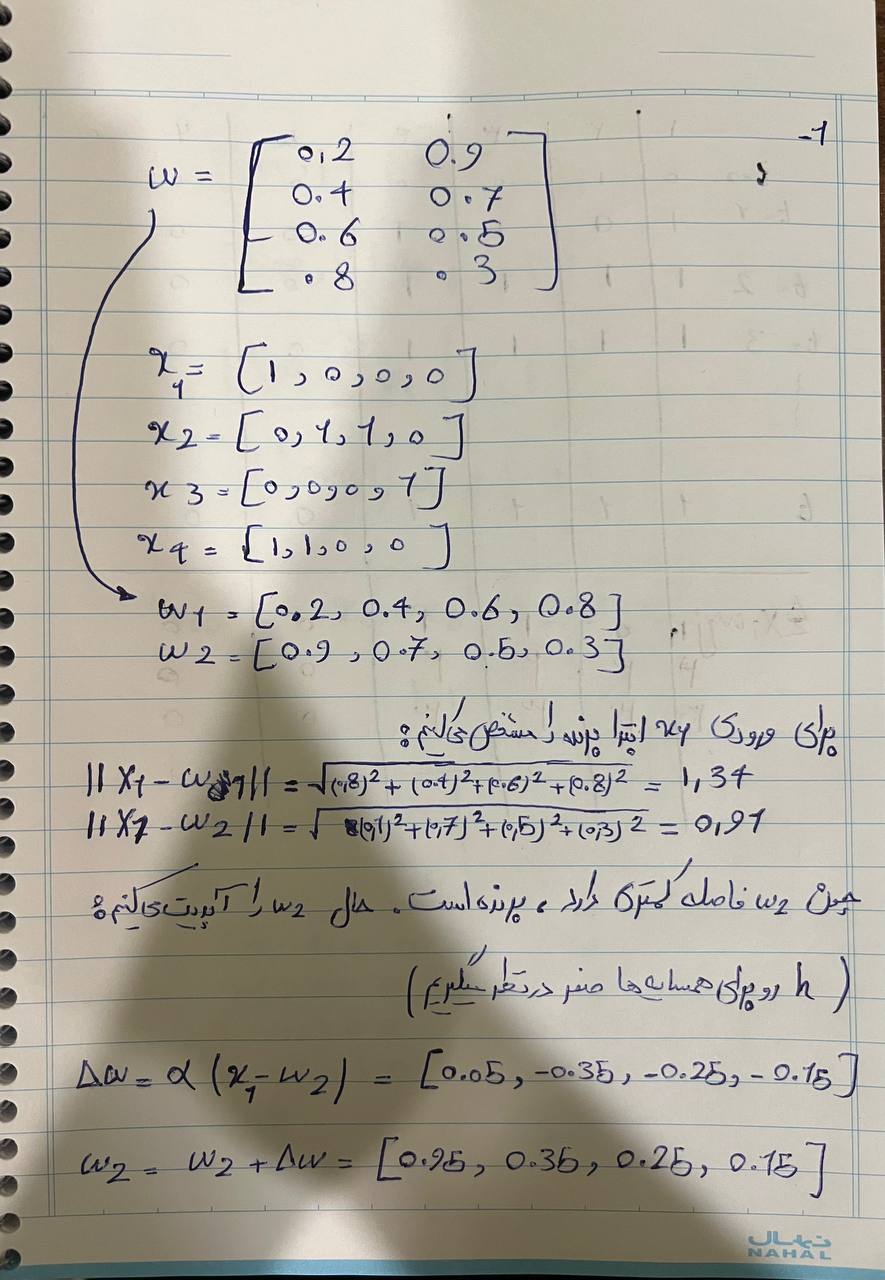 -1
w = [0,2 0.9
0.4 0.7
0.6 0.5
.8 .3]
x1 = [1, 0, 0, 0]
x2 = [0, 1, 1, 0]
x3 = [0, 0, 0, 1]
x4 = [1, 1, 0, 0]
w1 = [0.2, 0.4, 0.6, 0.8]
w2 = [0.9, 0.7, 0.5, 0.3]
برای ورودی x1 ابتدا برنده را مشخص می‌کنیم:
||X1 - w1|| = √(0,8)² + (0.4)² + (0.6)² + (0.8)² = 1,34
||X1 - w2|| = √(0,1)² + (0,7)² + (0,5)² + (0,3)² = 0,91
چون w2 فاصله کمتری دارد، برنده است. حال w2 را آپدیت می‌کنیم:
(h رو برای همسایه ها صفر در نظر میگیریم)
Δw = α (x1 - w2) = [0.05, -0.35, -0.25, -0.15]
w2 = w2 + Δw = [0.95, 0.35, 0.25, 0.15]
نهال
NAHAL